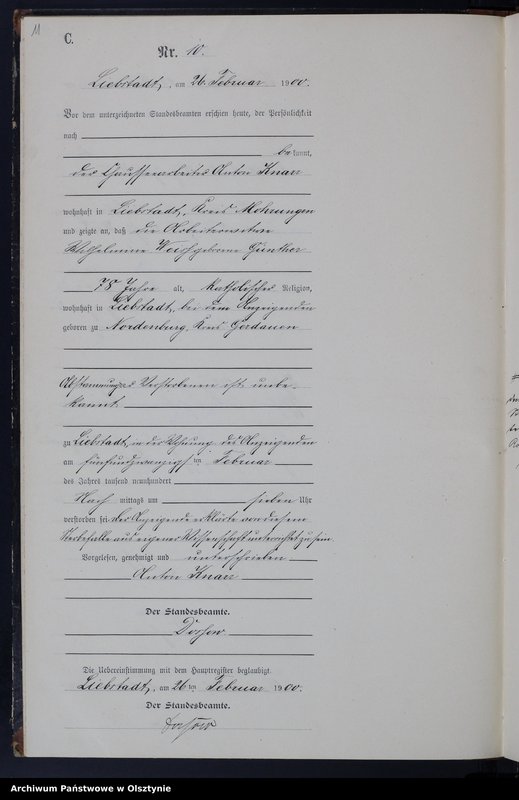 11
C.
Nr. 10.
Liebstadt, am 26. Februar 1900.
Vor dem unterzeichneten Standesbeamten erschien heute, der Persönlichkeit
nach
bekannt,
der Chausseearbeiter Anton Knarr
wohnhaft in Liebstadt, Kreis Mohrungen
und zeigte an, daß die Arbeiterwitwe
Wilhelmine geborene Günther
78 Jahre alt, katholischer Religion,
wohnhaft in Liebstadt, bei dem Anzeigenden
geboren zu Nordenburg, Kreis Gerdauen
Abstammung des Verstorbenen ist unbe-
kannt
zu Liebstadt, in der Wohnung des Anzeigenden
am fünfundzwanzigsten Februar
des Jahres tausend neunhundert
Nachmittags um sieben Uhr
verstorben sei. Der Anzeigende erklärte von diesem
Sterbefalle aus eigener Wissenschaft unterrichtet zu sein.
Vorgelesen, genehmigt und unterschrieben
Anton Knarr
Der Standesbeamte.
Die Uebereinstimmung mit dem Hauptregister beglaubigt.
Liebstadt, am 26ten Februar 1900.
Der Standesbeamte.
Archiwum Państwowe w Olsztynie